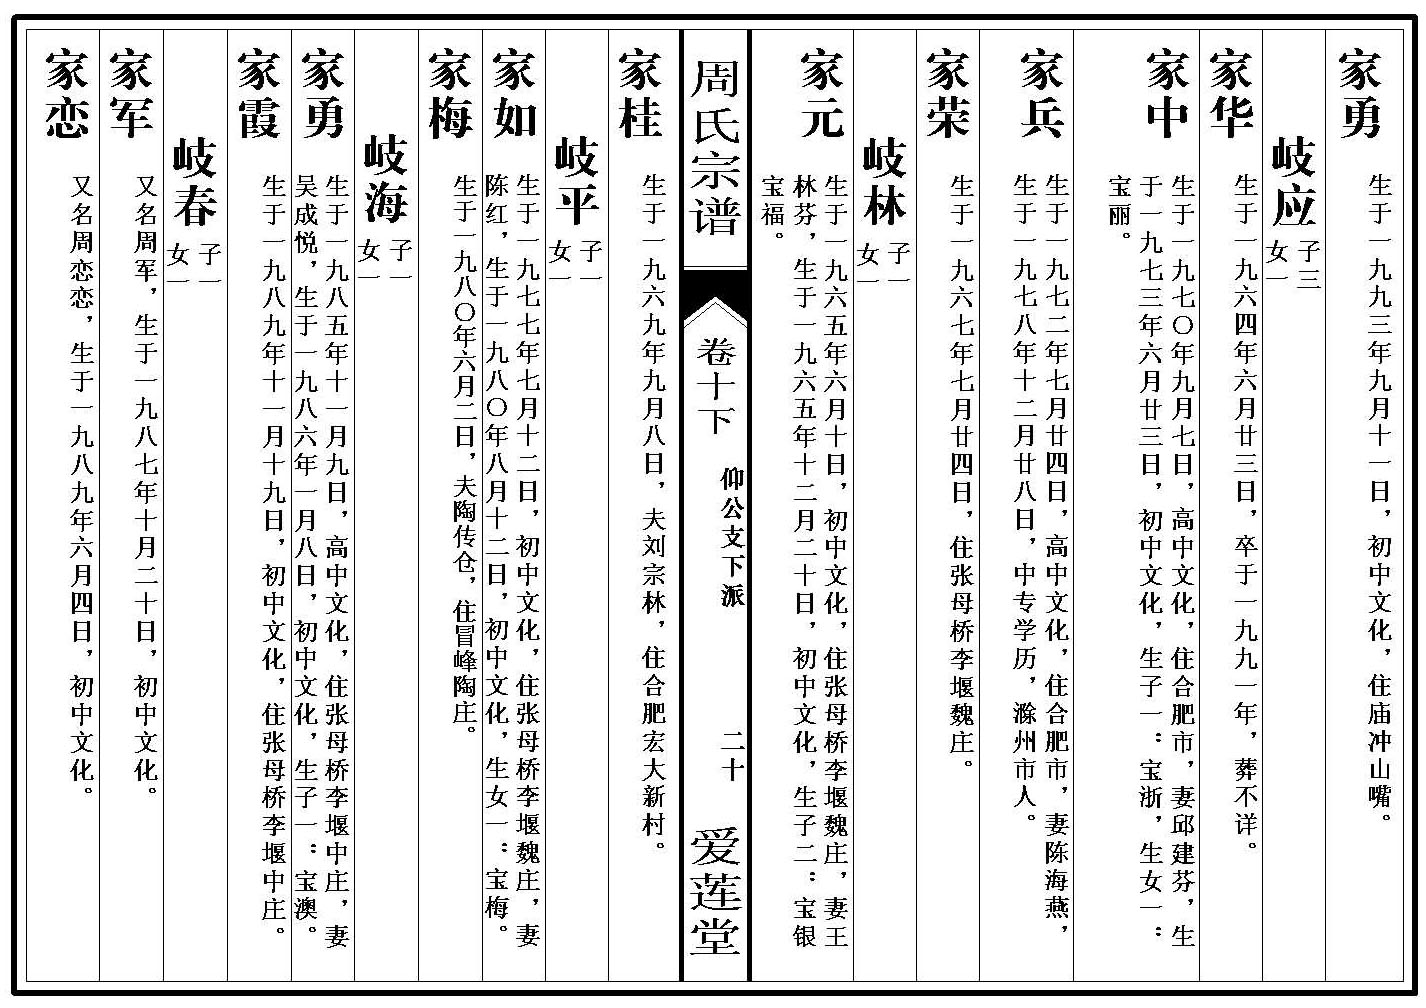 家勇
生于一九九三年九月十一日，初中文化，住庙冲山嘴。
岐应
子三
女一
家华
生于一九六四年六月廿三日，卒于一九九一年，葬不详。
家中
生于一九七〇年九月七日，高中文化，住合肥市，妻邱建芬，生
于一九七三年六月廿三日，初中文化，生子一：宝浙，生女一：
宝丽。
家兵
生于一九七二年七月廿四日，高中文化，住合肥市，妻陈海燕，
生于一九七八年十二月廿八日，中专学历，滁州市人。
家荣
生于一九六七年七月廿四日，住张母桥李堰魏庄。
岐林
子一
女一
家元
生于一九六五年六月十日，初中文化，住张母桥李堰魏庄，妻王
林芬，生于一九六五年十二月二十日，初中文化，生子二：宝银
宝福。
周氏宗谱
卷十下
仰公支下派
二十
爱莲堂
家桂
生于一九六九年九月八日，夫刘宗林，住合肥宏大新村。
岐平
子一
女一
家如
生于一九七七年七月十二日，初中文化，住张母桥李堰魏庄，妻
陈红，生于一九八〇年八月十二日，初中文化，生女一：宝梅。
家梅
生于一九八〇年六月二日，夫陶传仓，住冒峰陶庄。
岐海
子一
女一
家勇
生于一九八五年十一月九日，高中文化，住张母桥李堰中庄，妻
吴成悦，生于一九八六年一月八日，初中文化，生子一：宝澳。
家霞
生于一九八九年十一月十九日，初中文化，住张母桥李堰中庄。
岐春
子一
女一
家军
又名周军，生于一九八七年十月二十日，初中文化。
家恋
又名周恋恋，生于一九八九年六月四日，初中文化。